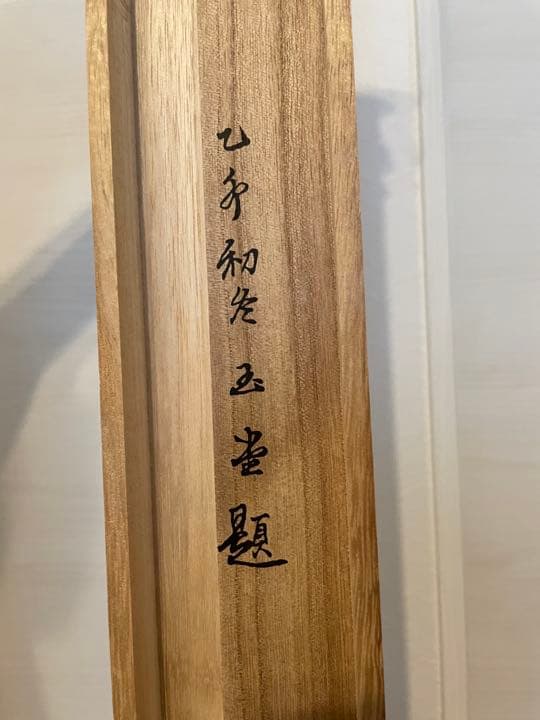 乙卯初冬玉堂題